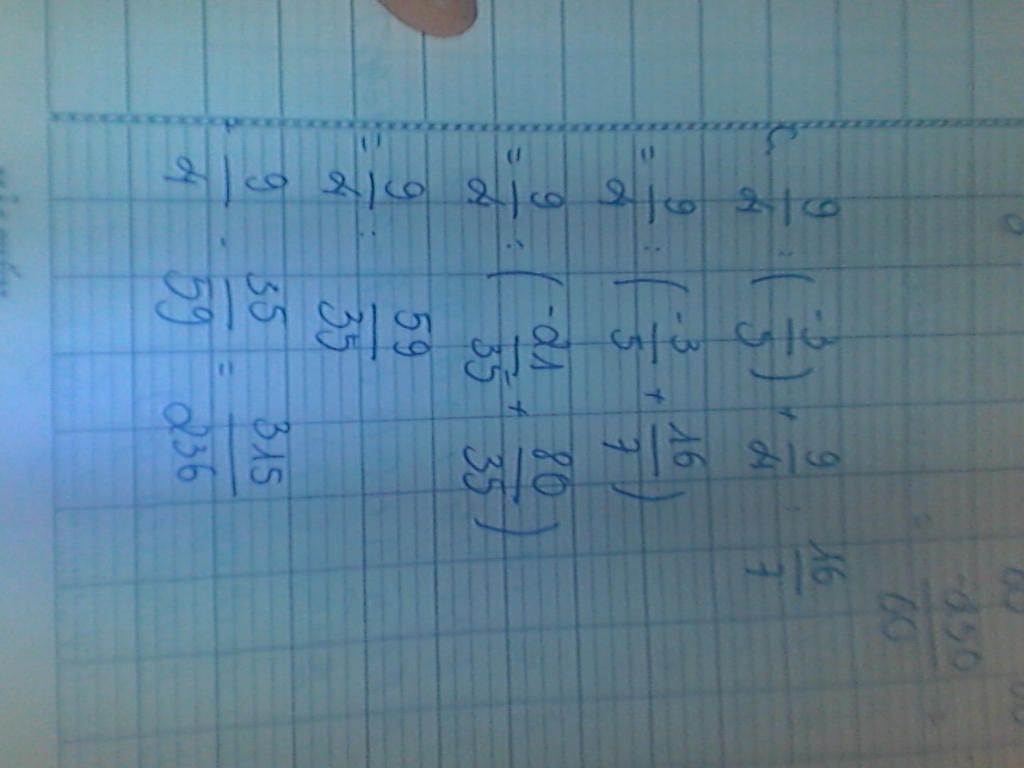 C. 9/4 : (-3/5) + 9/4 : 16/7
= 9/4 : (-3/5 + 16/7)
= 9/4 : (-21/35 + 80/35)
= 9/4 : 59/35
= 9/4 . 35/59 = 315/236